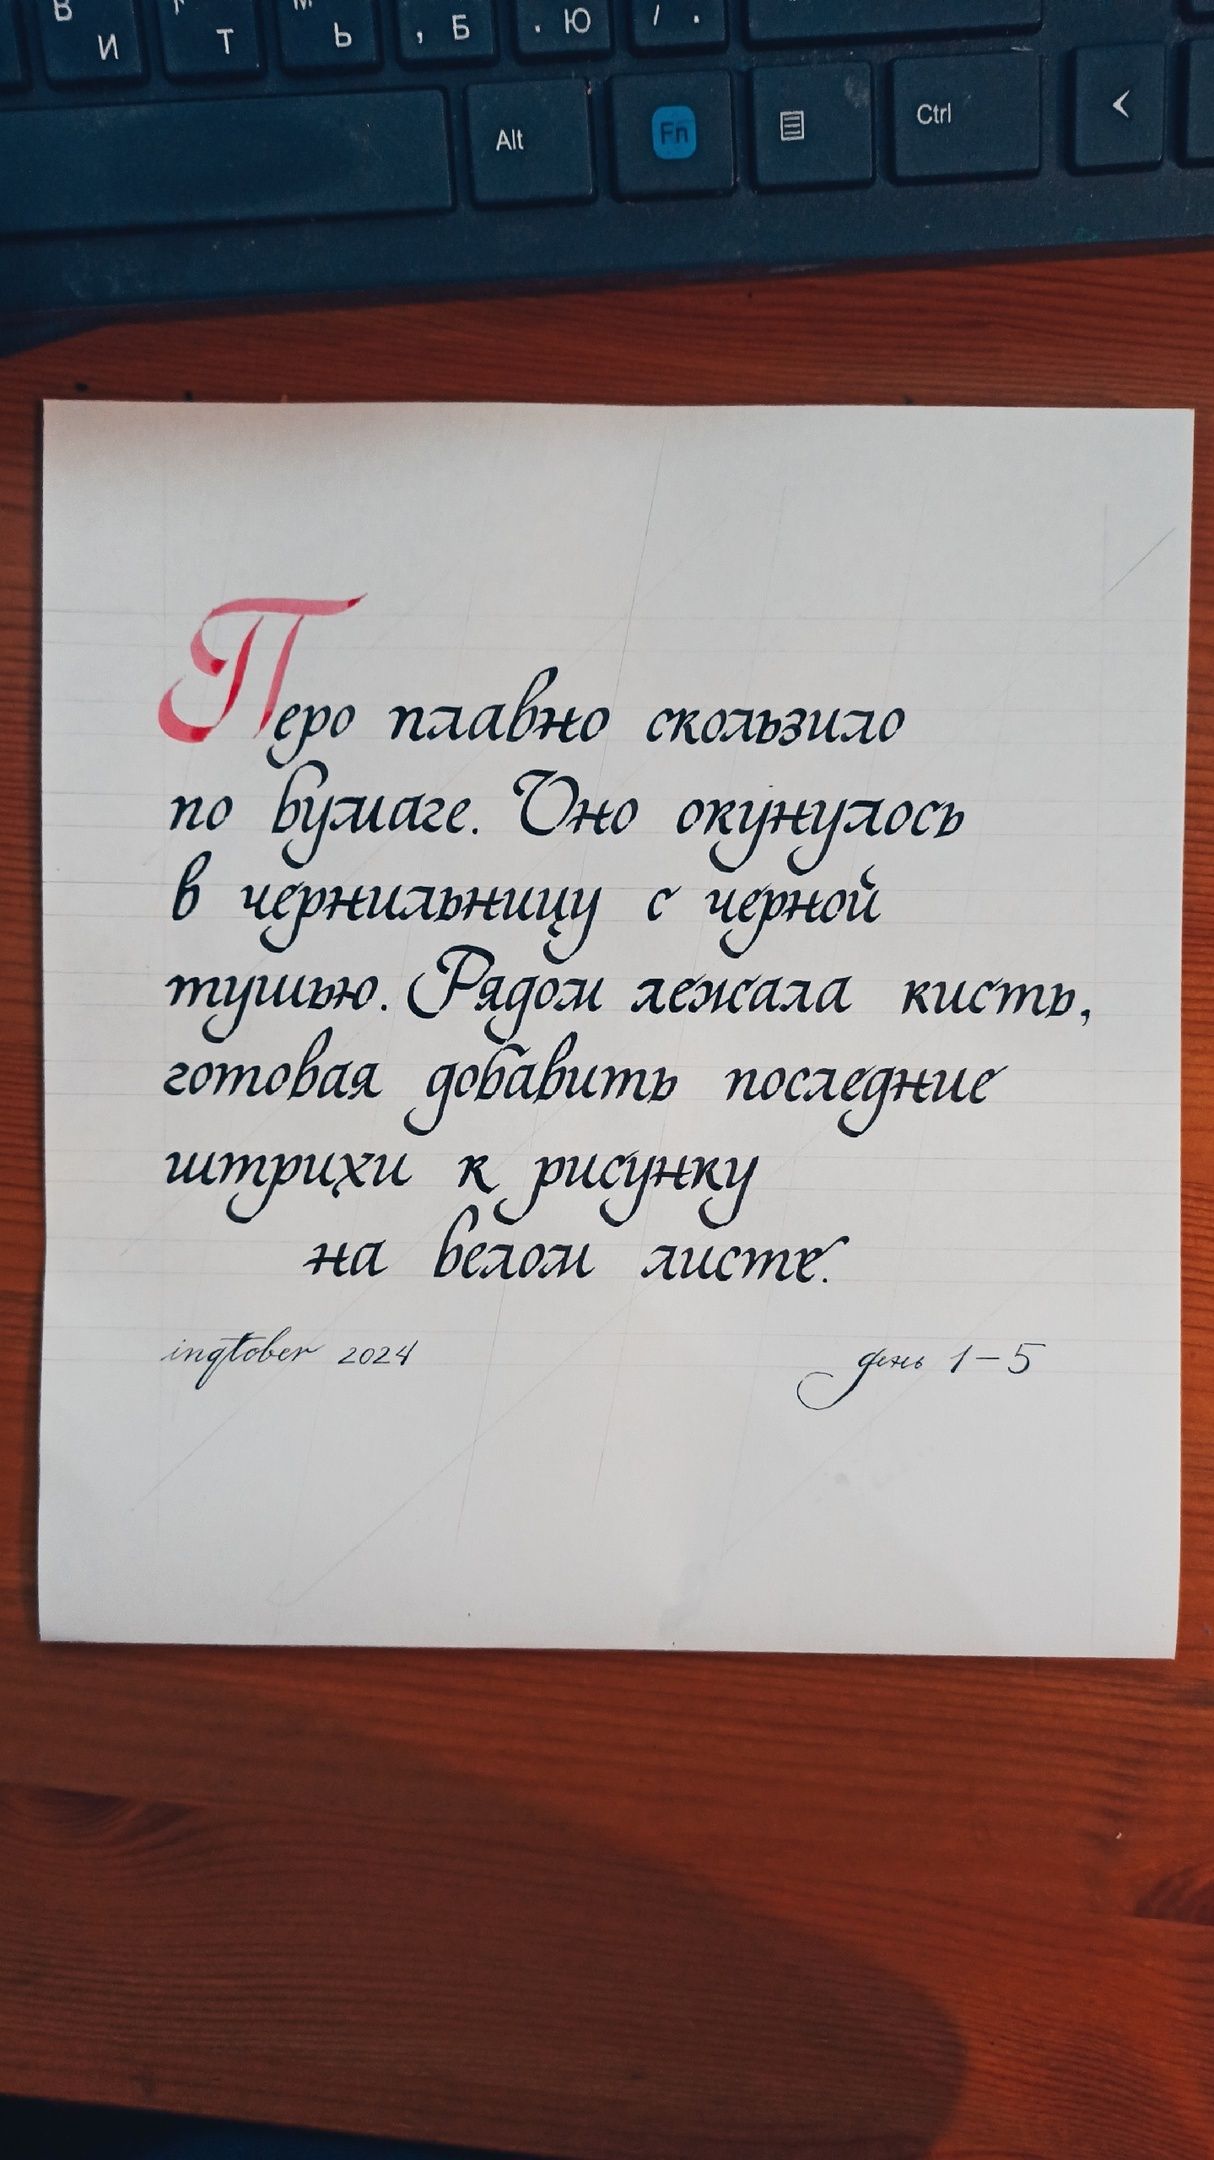 И Т Ь , Б . Ю / .
Alt Fn Ctrl <
Перо плавно скользило
по бумаге. Оно окунулось
в чернильницу с черной
тушью. Рядом лежала кисть,
готовая добавить последние
штрихи к рисунку
на белом листе.
inqtober 2024
день 1-5